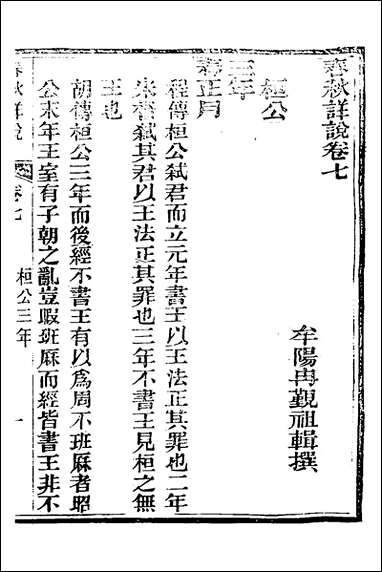 春秋詳說卷七
牟陽冉覲祖輯撰
桓公
三年
春正月
程傳桓公弑君而立元年書王以王法正其罪也二年
宋督弑其君以王法正其罪也三年不書王見桓之無
王也
胡傳桓公三年而後經不書王有以爲周不班厤者昭
公末年王室有子朝之亂豈暇班厤而經皆書王非不
春秋詳說 卷七 桓公三年 一